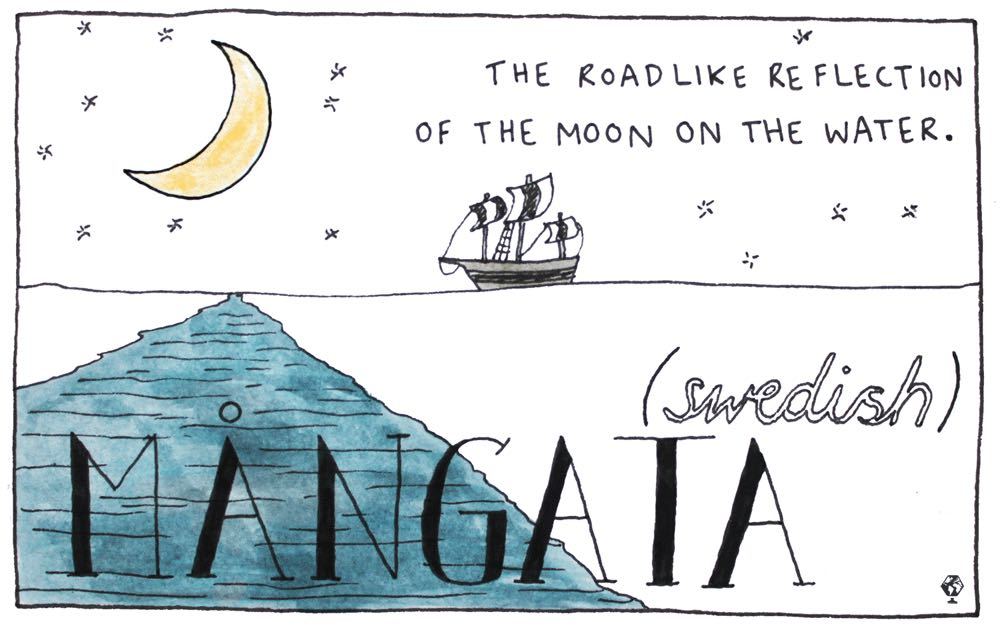 THE ROADLIKE REFLECTION
OF THE MOON ON THE WATER.
(swedish)
MÅNGATA